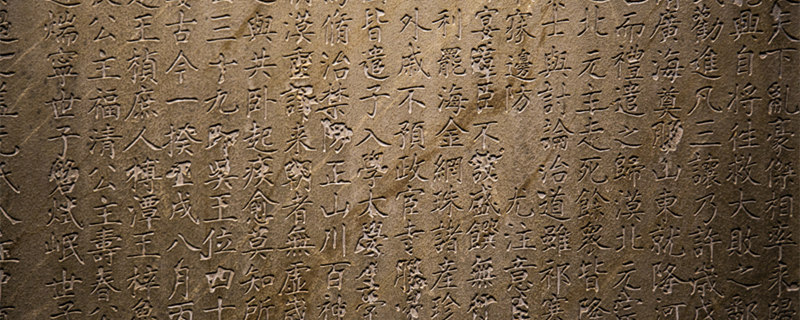 天下亂豪傑相率來歸
興自將往救大敗之鄱
勸進凡三讓乃許歲戊
廣海奠山東就降河
而禮遣之歸漠北元宗
北元主走死餘衆皆降
士與討論治道雖祁寒
寐邊防尤注意
宴不設盛饌無
利罷海金網珠諸產珍
外戚不預政宦寺服
皆遣子入學太學生
脩治禁正山川百神
漠來朝者無虛歲
與共卧起疾愈莫知所
三十九即吳王位四十
古今一揆戌八月丙
王楨庶人榑潭王梓魯
公主福清公主壽春公
端寧世子岷世子